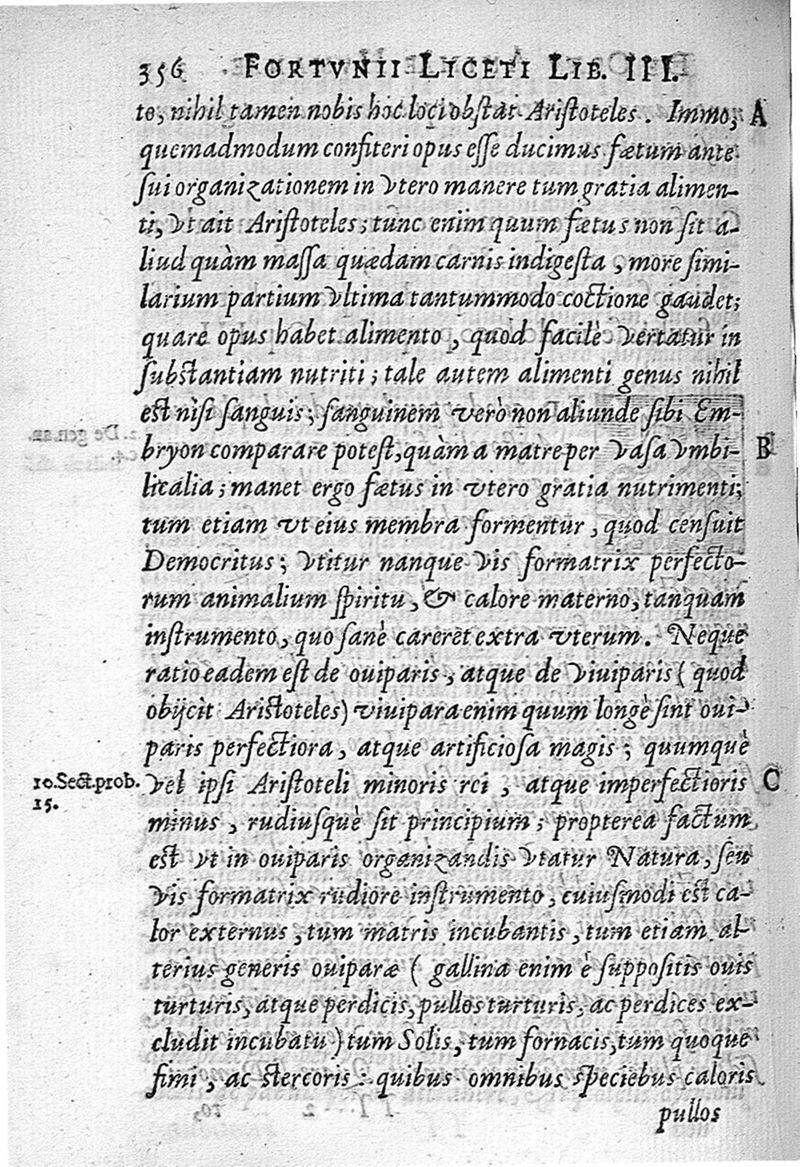 356 FORTVNII LICETI LIB. III.
to, nihil tamen nobis hoc loci obstat Aristoteles. Immo, A
quemadmodum confiteri opus esse ducimus fætum ante
sui organizationem in vtero manere tum gratia alimen-
ti, vt ait Aristoteles; tunc enim quum fætus non sit a-
liud quàm massa quædam carnis indigesta, more simi-
larium partium vltima tantummodo coctione gaudet;
quare opus habet alimento, quod facilè vertatur in
substantiam nutriti; tale autem alimenti genus nihil
est nisi sanguis; sanguinem verò non aliunde sibi Em-
bryon comparare potest, quàm a matre per vasa vmbi- B
licalia; manet ergo fætus in vtero gratia nutrimenti;
tum etiam vt eius membra formentur, quod censuit
Democritus; vtitur nanque vis formatrix perfecto-
rum animalium spiritu, & calore materno, tanquam
instrumento, quo sanè careret extra vterum. Neque
ratio eadem est de ouiparis, atque de viuiparis (quod
obijcit Aristoteles) viuipara enim quum longè sint oui-
paris perfectiora, atque artificiosa magis; quumquè
10. Sect. prob. vel ipsi Aristoteli minoris rei, atque imperfectioris C
15. minus, rudiusquè sit principium; propterea factum
est vt in ouiparis organizandis vtatur Natura, seu
vis formatrix rudiore instrumento, cuiusmodi est ca-
lor externus, tum matris incubantis, tum etiam al-
terius generis ouiparæ (gallina enim è suppositis ouis
turturis, atque perdicis, pullos turturis, ac perdices ex-
cludit incubatu) tum Solis, tum fornacis, tum quoque
fimi, ac stercoris: quibus omnibus speciebus caloris
pullos